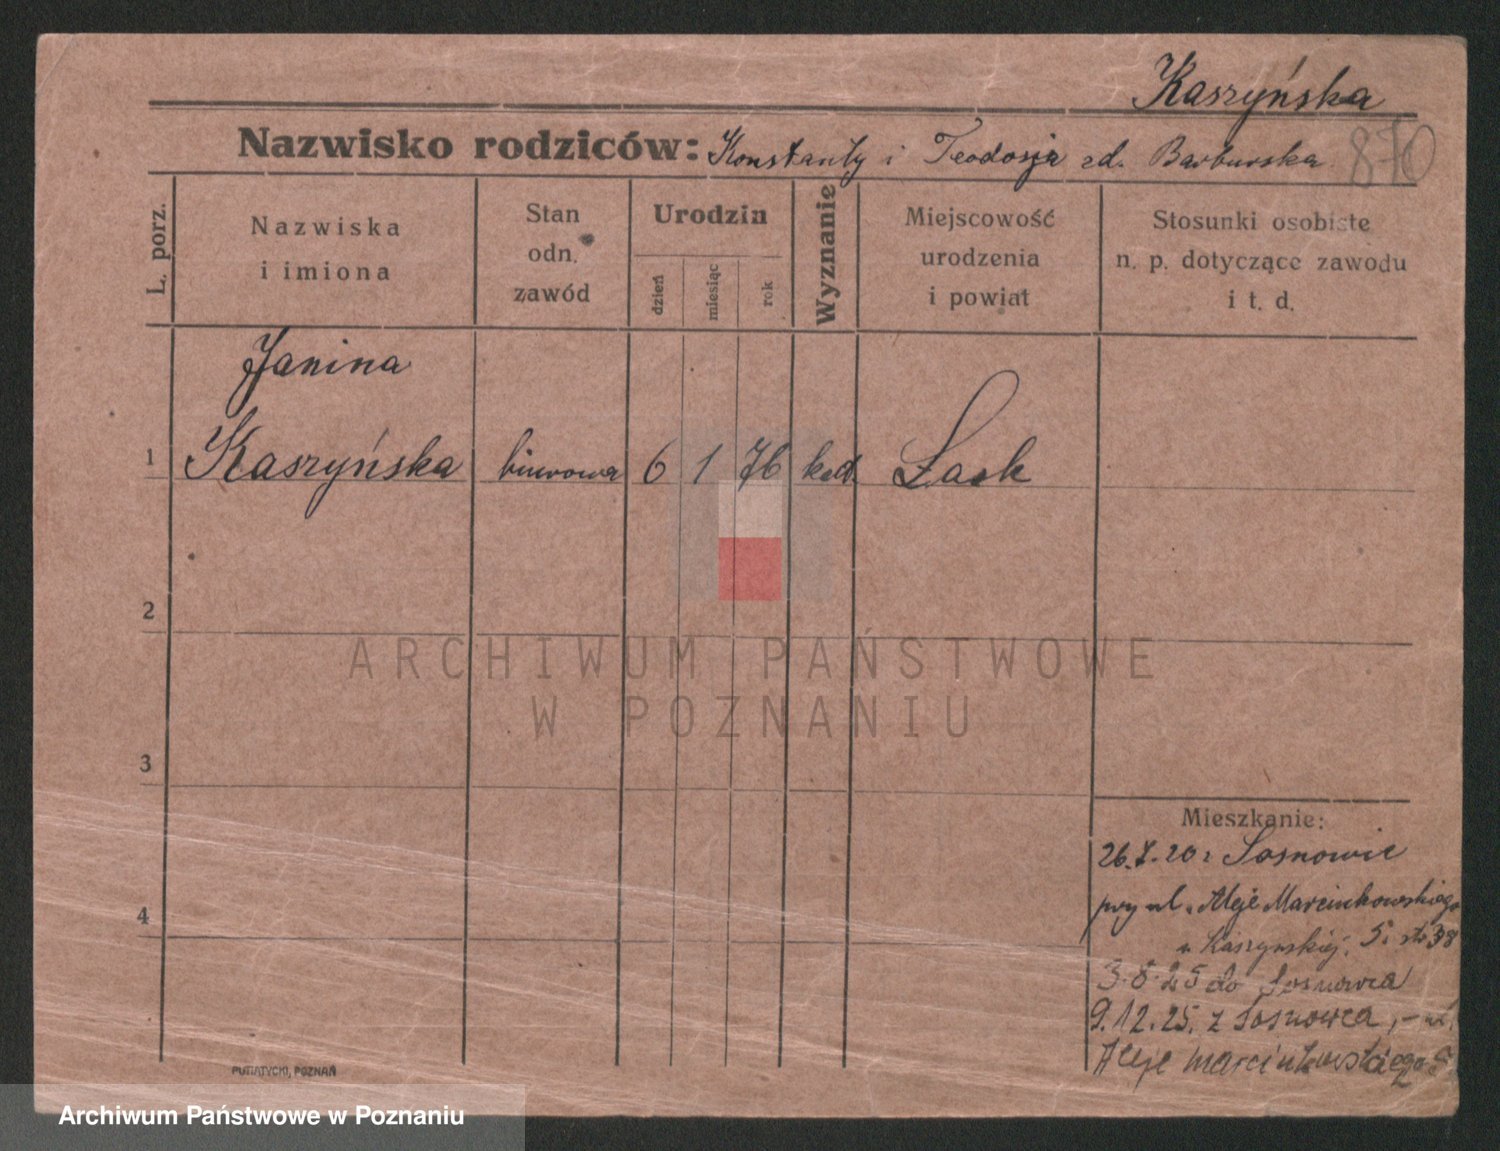 Kaszyńska
870
Nazwisko rodziców: Konstanty i Teodozja zd. Barburska
L. porz.
Nazwiska
i imiona
Stan
odn.
zawód
Urodzin
dzień
miesiąc
rok
Wyznanie
Miejscowość
urodzenia
i powiat
Stosunki osobiste
n. p. dotyczące zawodu
i t. d.
Janina
1 Kaszyńska biurowa 6 1 76 kat. Łask
2
3
4
Mieszkanie:
26.7.20 z Sosnowic
przy ul. Aleje Marcinkowskiego
u Kaszyńskiej. 5.
3.8.25 do Sosnowca
9.12.25. z Sosnowca, - ul.
Aleje Marcinkowskiego 5
PUTIATYCKI, POZNAŃ
ARCHIWUM PAŃSTWOWE
W POZNANIU
Archiwum Państwowe w Poznaniu